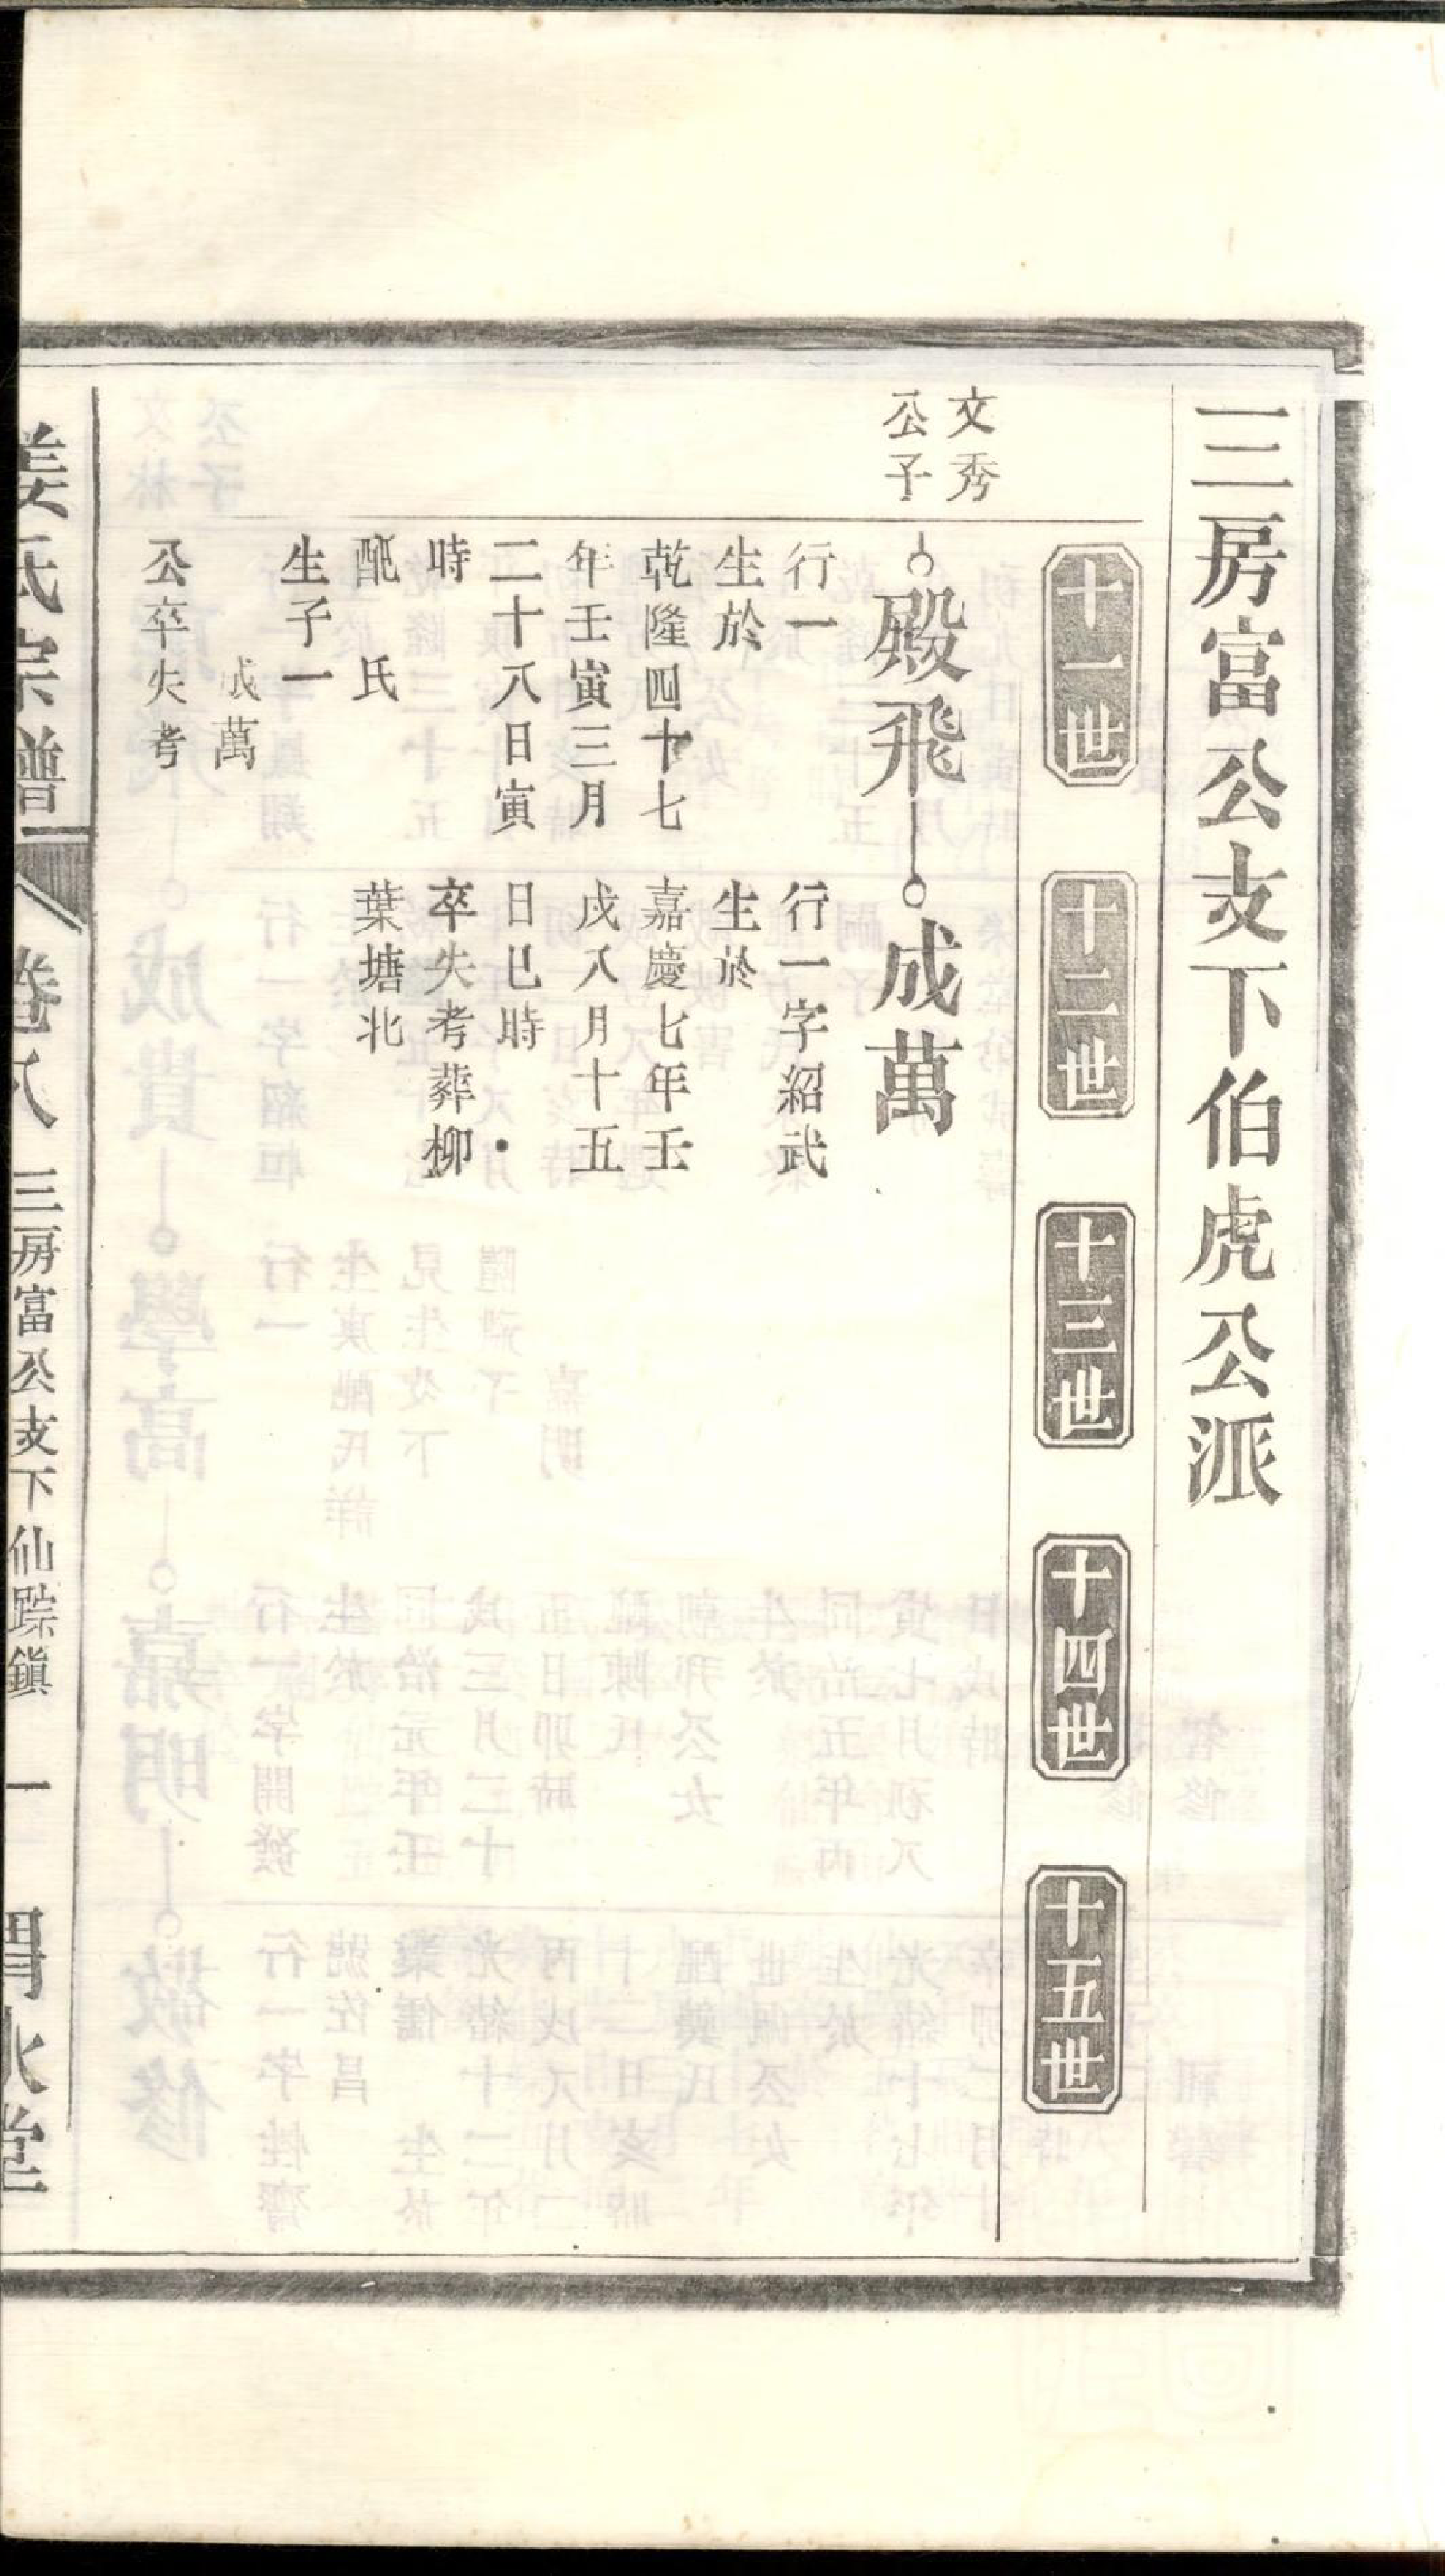 三房富公支下伯虎公派
十一世
十二世
十三世
十四世
十五世
文秀
公子
殿飛
行一
生於
乾隆四十七
年壬寅三月
二十八日寅
時
配　氏
生子一
成萬
公卒失考
成萬
行一字紹武
生於
嘉慶七年壬
戌八月十五
日巳時
卒失考葬柳
葉塘北
姜氏宗譜
卷八
三房富公支下仙踪鎮
一
渭水堂